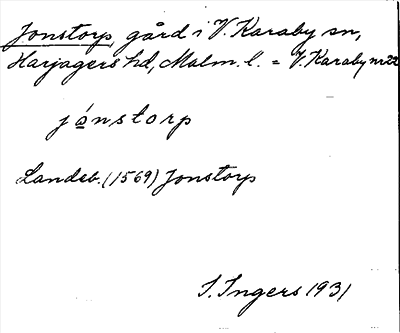 Jonstorp, gård i V. Karaby sn,
Harjagers hd, Malm. l. = V. Karaby nr 22
jónstorp
Landeb. (1569) Jonstorp
I. Ingers 1931